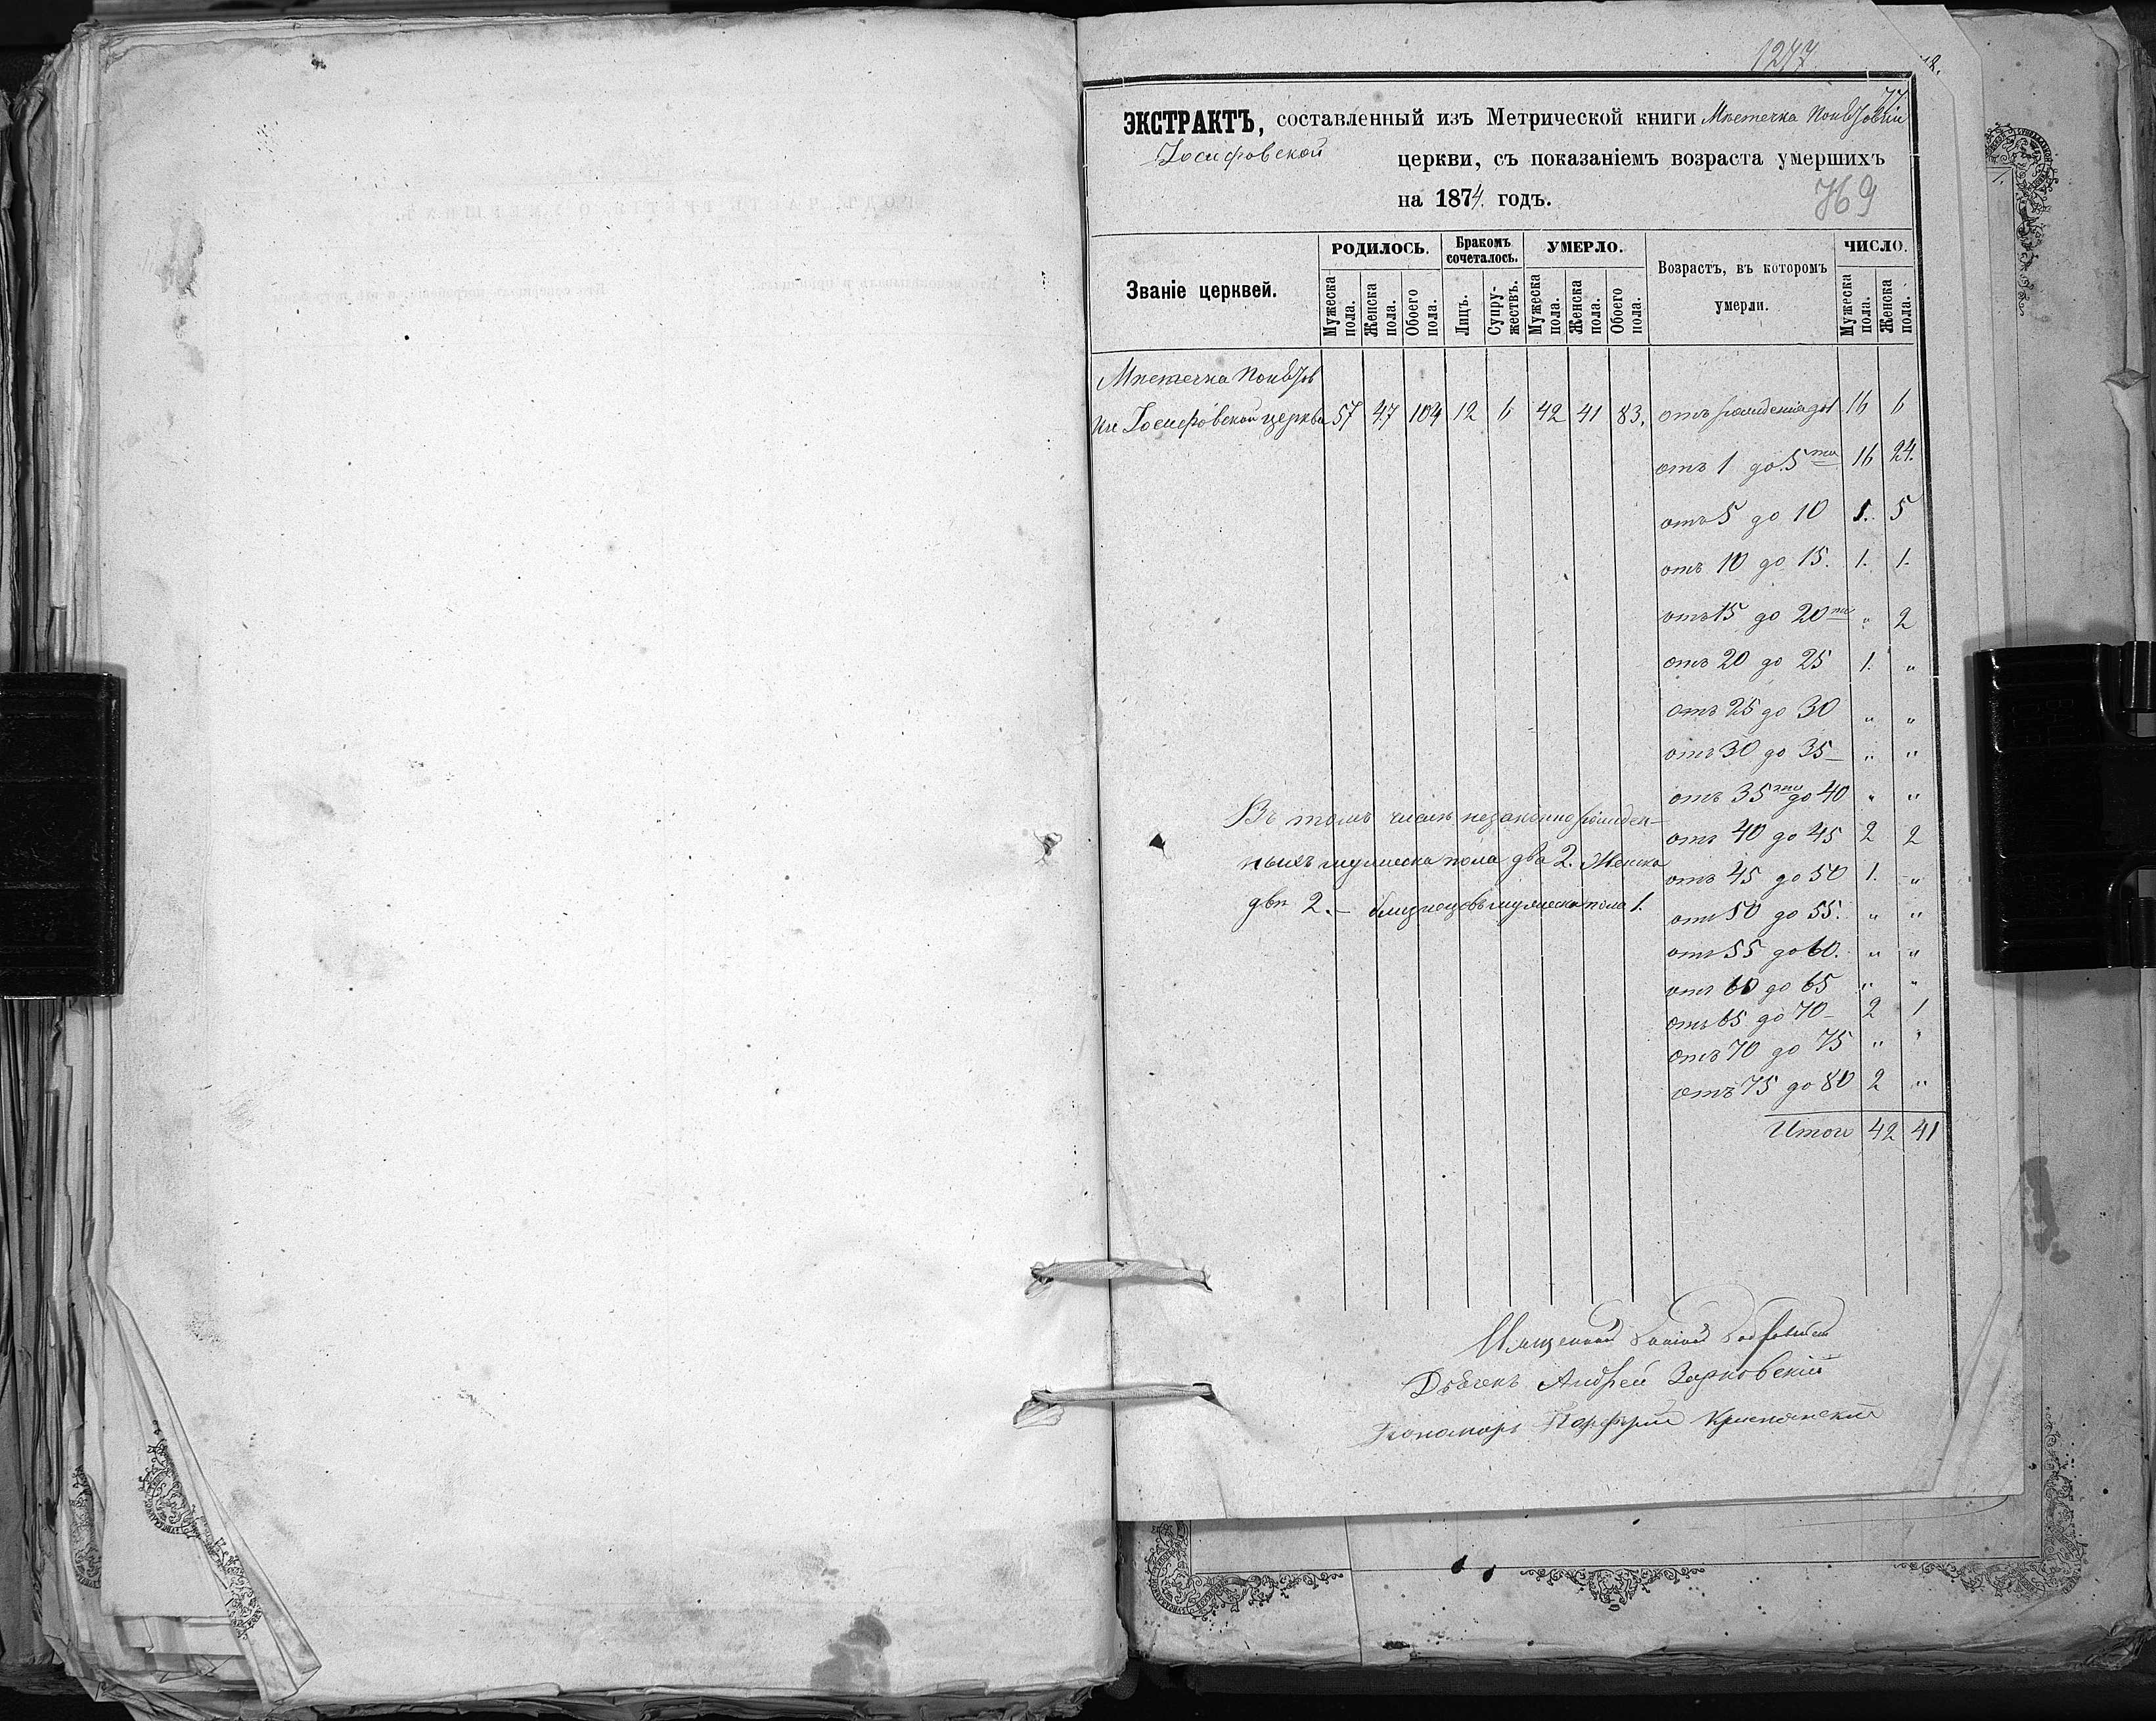 1247
77
ЭКСТРАКТЪ, составленный изъ Метрической книги Мѣстечка
Іосифовской церкви, съ показаніемъ возраста умершихъ
на 1874. годъ.
769
Званіе церквей. РОДИЛОСЬ. Бракомъ сочеталось. УМЕРЛО. Возрастъ, въ которомъ умерли. ЧИСЛО.
Мужеска пола. Женска пола. Обоего пола. Лицъ. Супружествъ. Мужеска пола. Женска пола. Обоего пола. Мужеска пола. Женска пола.
Мѣстечка
Іосифовской церкви 57 47 104 12 6 42 41 83. отъ рожденія до 1 16 6
отъ 1 до 5ти 16 24.
отъ 5 до 10 1. 5
отъ 10 до 15. 1. 1.
отъ 15 до 20ти " 2
отъ 20 до 25 1. "
отъ 25 до 30 " "
отъ 30 до 35 " "
отъ 35ти до 40 " "
отъ 40 до 45 2 2
отъ 45 до 50 1. "
отъ 50 до 55. " "
отъ 55 до 60. " "
отъ 60 до 65 " "
отъ 65 до 70 2 1
отъ 70 до 75 " "
отъ 75 до 80 2 "
Итого 42 41
Въ томъ числѣ незаконно рожден-
ныхъ мужеска пола два 2. Женска
двѣ 2. – близнецовъ мужеска пола 1.
Священникъ
Дьячекъ Андрей Зарковскій
Пономарь Порфирій